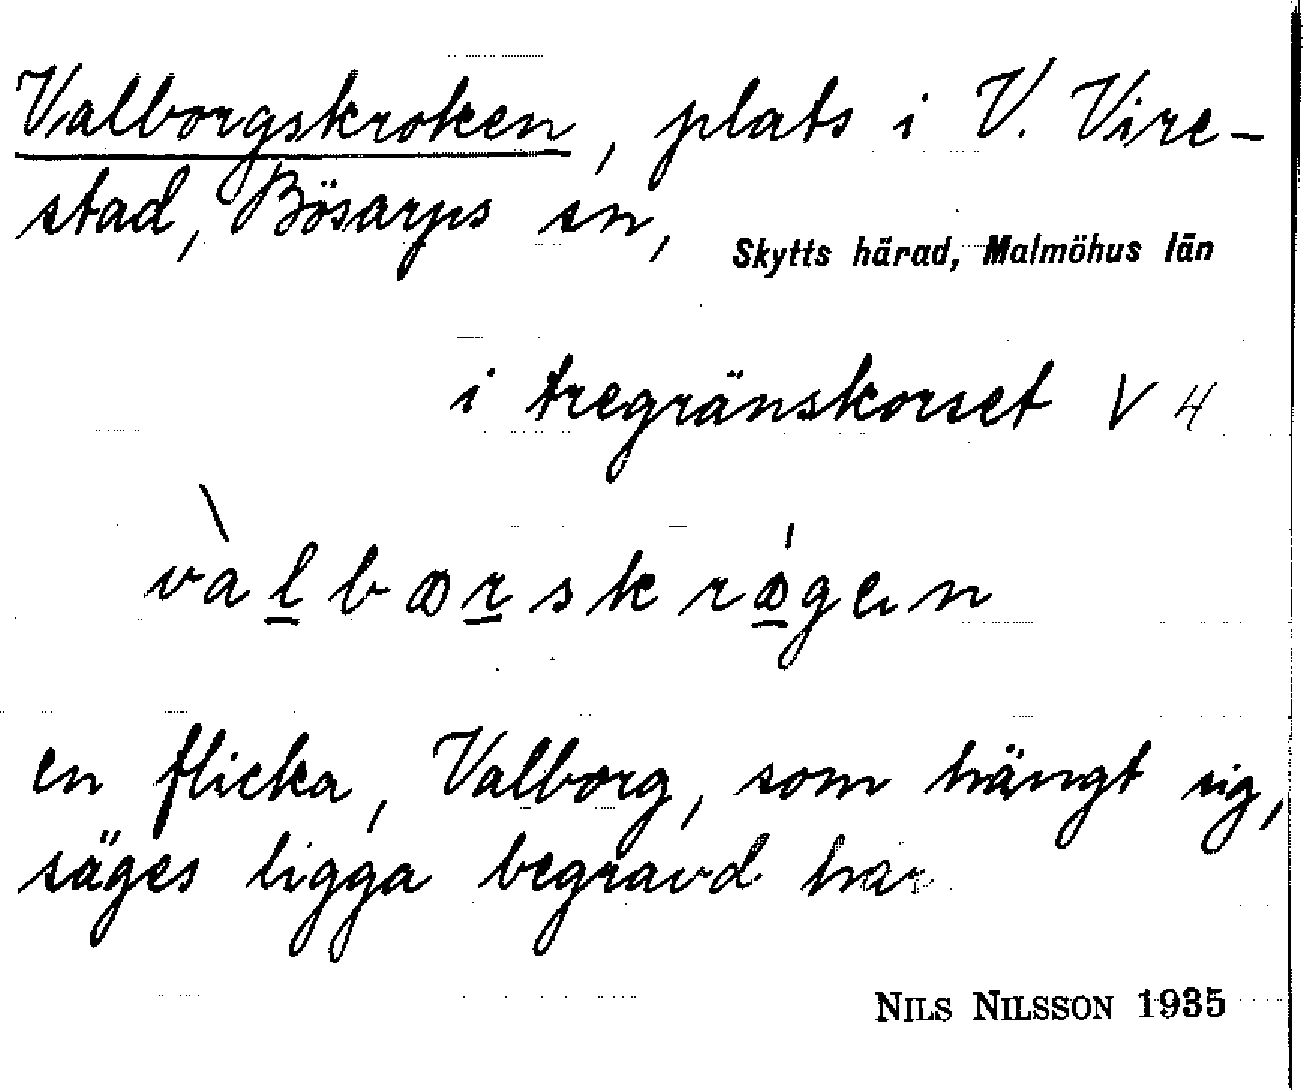 Valborgskroken, plats i V. Vire-
stad, Bösarps sn, Skytts härad, Malmöhus län
i tregränskorset V 4
en flicka, Valborg, som hängt sig,
säges ligga begravd här
NILS NILSSON 1935